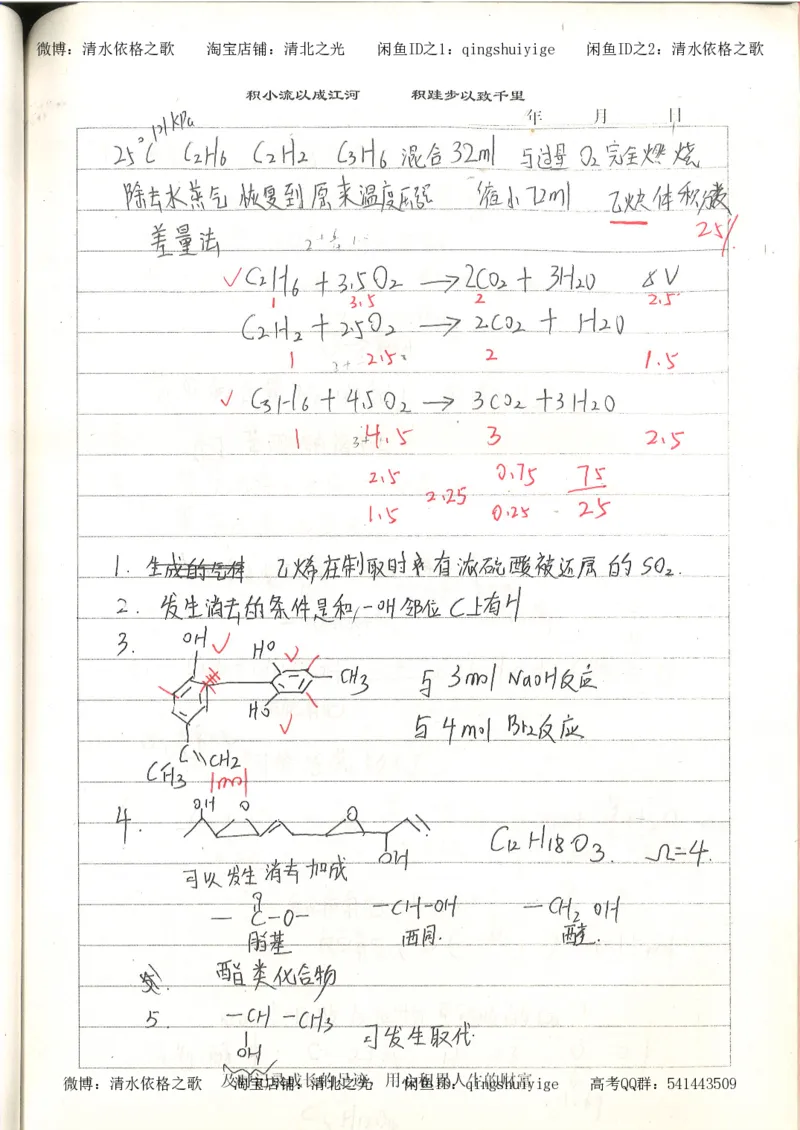 微博：清水依格之歌 淘宝店铺：清北之光 闲鱼ID之1：qingshuiyige 闲鱼ID之2：清水依格之歌
积小流以成江河 积跬步以致千里
年 月 日
25℃ 101kPa C2H6 C2H2 C3H6 混合32ml 与过量O2完全燃烧
除去水蒸气 恢复到原来温度压强 缩小72ml 乙炔体积分数
25%
差量法
✓C2H6 + 3.5O2 → 2CO2 + 3H2O ΔV
1 3.5 2 2.5
C2H2 + 2.5O2 → 2CO2 + H2O
1 2.5 2 1.5
✓ C3H6 + 4.5O2 → 3CO2 + 3H2O
1 4.5 3 2.5
2.5 0.75 75
2.25
1.5 0.25 25
1. 生成的气体 乙烯在制取时有浓硫酸被还原的SO2.
2. 发生消去的条件是和-OH邻位C上有H
3. OH HO
CH3 与3mol NaOH反应
HO
与4mol Br2反应
C CH2
CH3 1mol
4. OH O O
OH C12H18O3. Ω=4.
可以发生消去 加成
O
-C-O- -CH-OH -CH2OH
酯基 酮. 醛.
酯类化合物
5. -CH-CH3 可发生取代
OH
微博：清水依格之歌 淘宝店铺：清北之光 闲鱼ID：qingshuiyige 高考QQ群：541443509